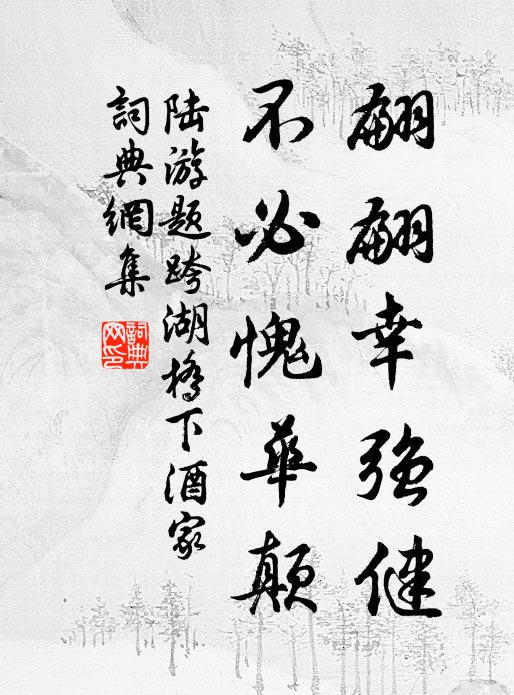 翩翩幸強健
不必愧華顛
陆游题跨湖橋下酒家
詞典網集
詞典
網印